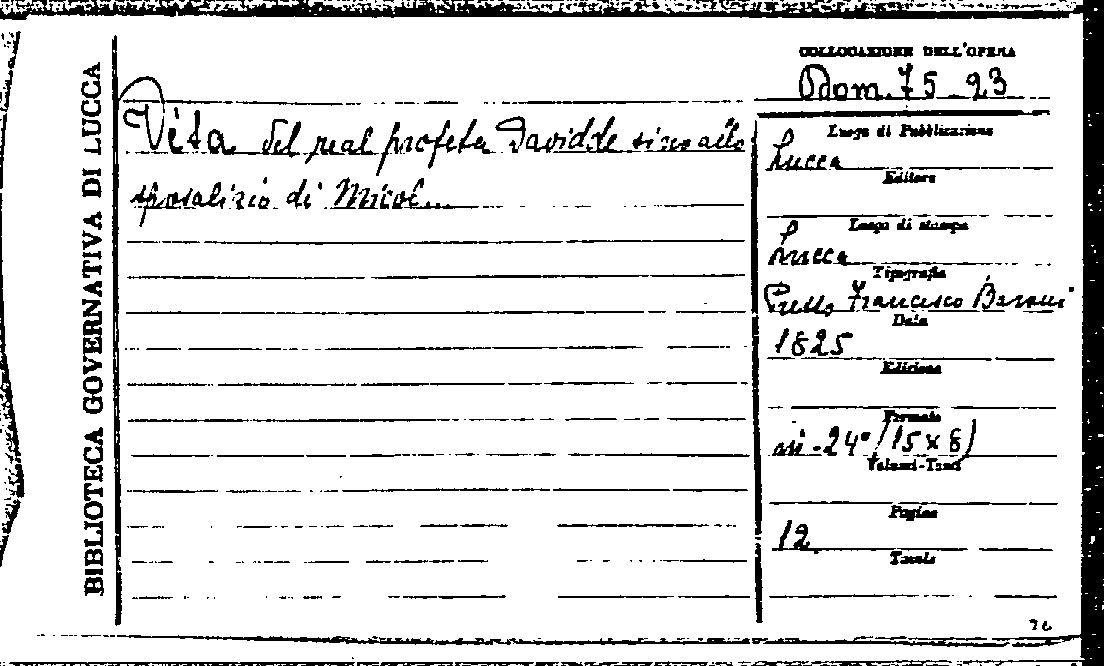 BIBLIOTECA GOVERNATIVA DI LUCCA
COLLOCAZIONE DELL'OPERA
Dom. 75_23
Vita del real profeta Davidde sino allo
sposalizio di Micol...
Luogo di Pubblicazione
Lucca
Editore
Luogo di stampa
Lucca
Tipografia
Presso Francesco Baroni
Data
1825
Edizione
Formato
in-24° (15 x 8)
Volumi-Tomi
Pagine
12
Tavole